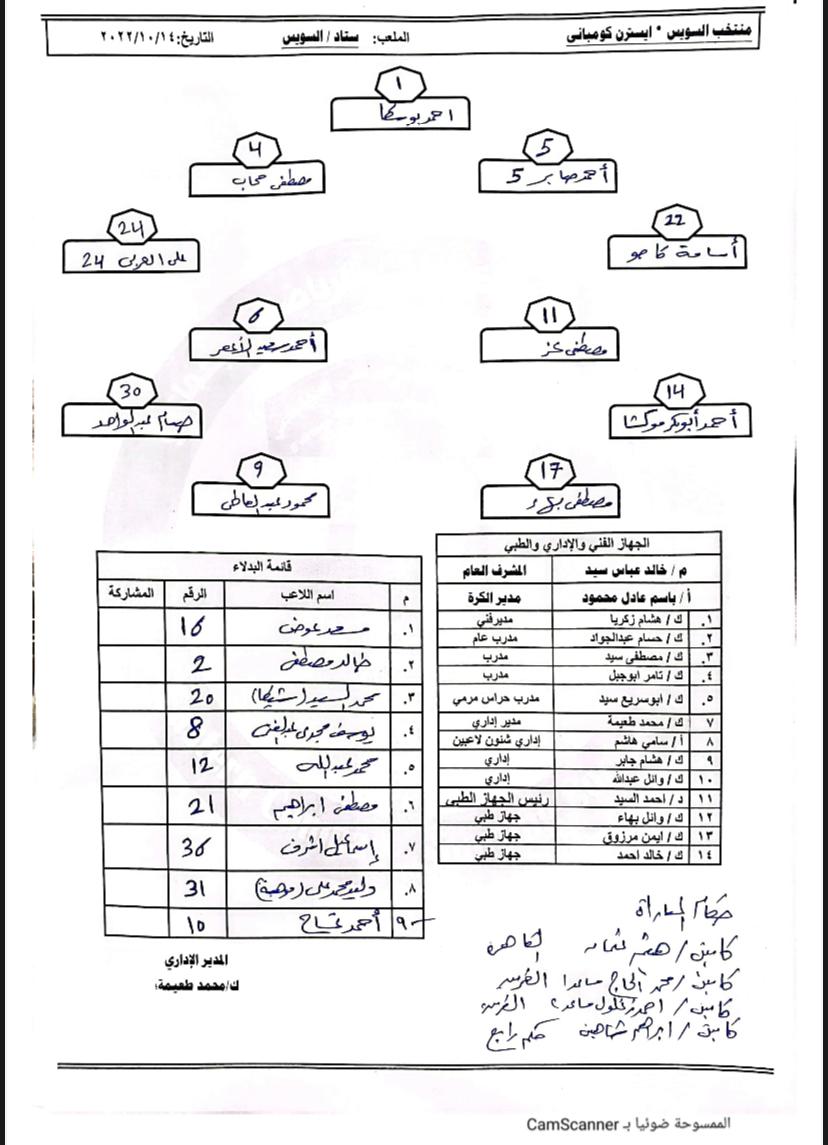 منتخب السويس * ايسترن كومبانى الملعب: ستاد / السويس التاريخ: ٢٠٢٢/١٠/١٤
1
احمد بوسكا
5
أحمد صابر 5
4
مصطفى
22
أسامة كاحو
24
على العربى 24
11
مصطفى عز
6
أحمد سعيد الأعصر
14
أحمد أبوبكر موكشا
30
عبدالواحد
17
مصطفى بهاء
9
محمود عبد العاطى
الجهاز الفني والإداري والطبي
م / خالد عباس سيد المشرف العام
أ / باسم عادل محمود مدير الكرة
١. ك / هشام زكريا مديرفني
٢. ك / حسام عبدالجواد مدرب عام
٣. ك / مصطفى سيد مدرب
٤. ك / تامر ابوجبل مدرب
٥. ك / ابوسريع سيد مدرب حراس مرمي
٧ ك / محمد طعيمة مدير إداري
٨ أ / سامي هاشم إداري شئون لاعبين
٩ ك / هشام جابر إداري
١٠ ك / وائل عبدالله إداري
١١ د / احمد السيد رئيس الجهاز الطبى
١٢ ك / وائل بهاء جهاز طبي
١٣ ك / ايمن مرزوق جهاز طبي
١٤ ك / خالد احمد جهاز طبي
قائمة البدلاء
م اسم اللاعب الرقم المشاركة
١. مسعد عوض 16
٢. خالد مصطفى 2
٣. محمد السيد (شيكا) 20
٤. يوسف مجدى عبدالغنى 8
٥. محمد عبدالله 12
٦. مصطفى ابراهيم 21
٧. إسماعيل اشرف 36
٨. وليد محمد على (موهبة) 31
٩- أحمد تمساح 10
المدير الإداري
ك/محمد طعيمة؛
حكام المباراة
كابتن / هشم عثمان القاهرة
كابتن / محمد الحاج مساعد١
كابتن / احمد زغلول مساعد٢
كابتن / ابراهيم شاهين حكم رابع
الممسوحة ضوئيا بـ CamScanner